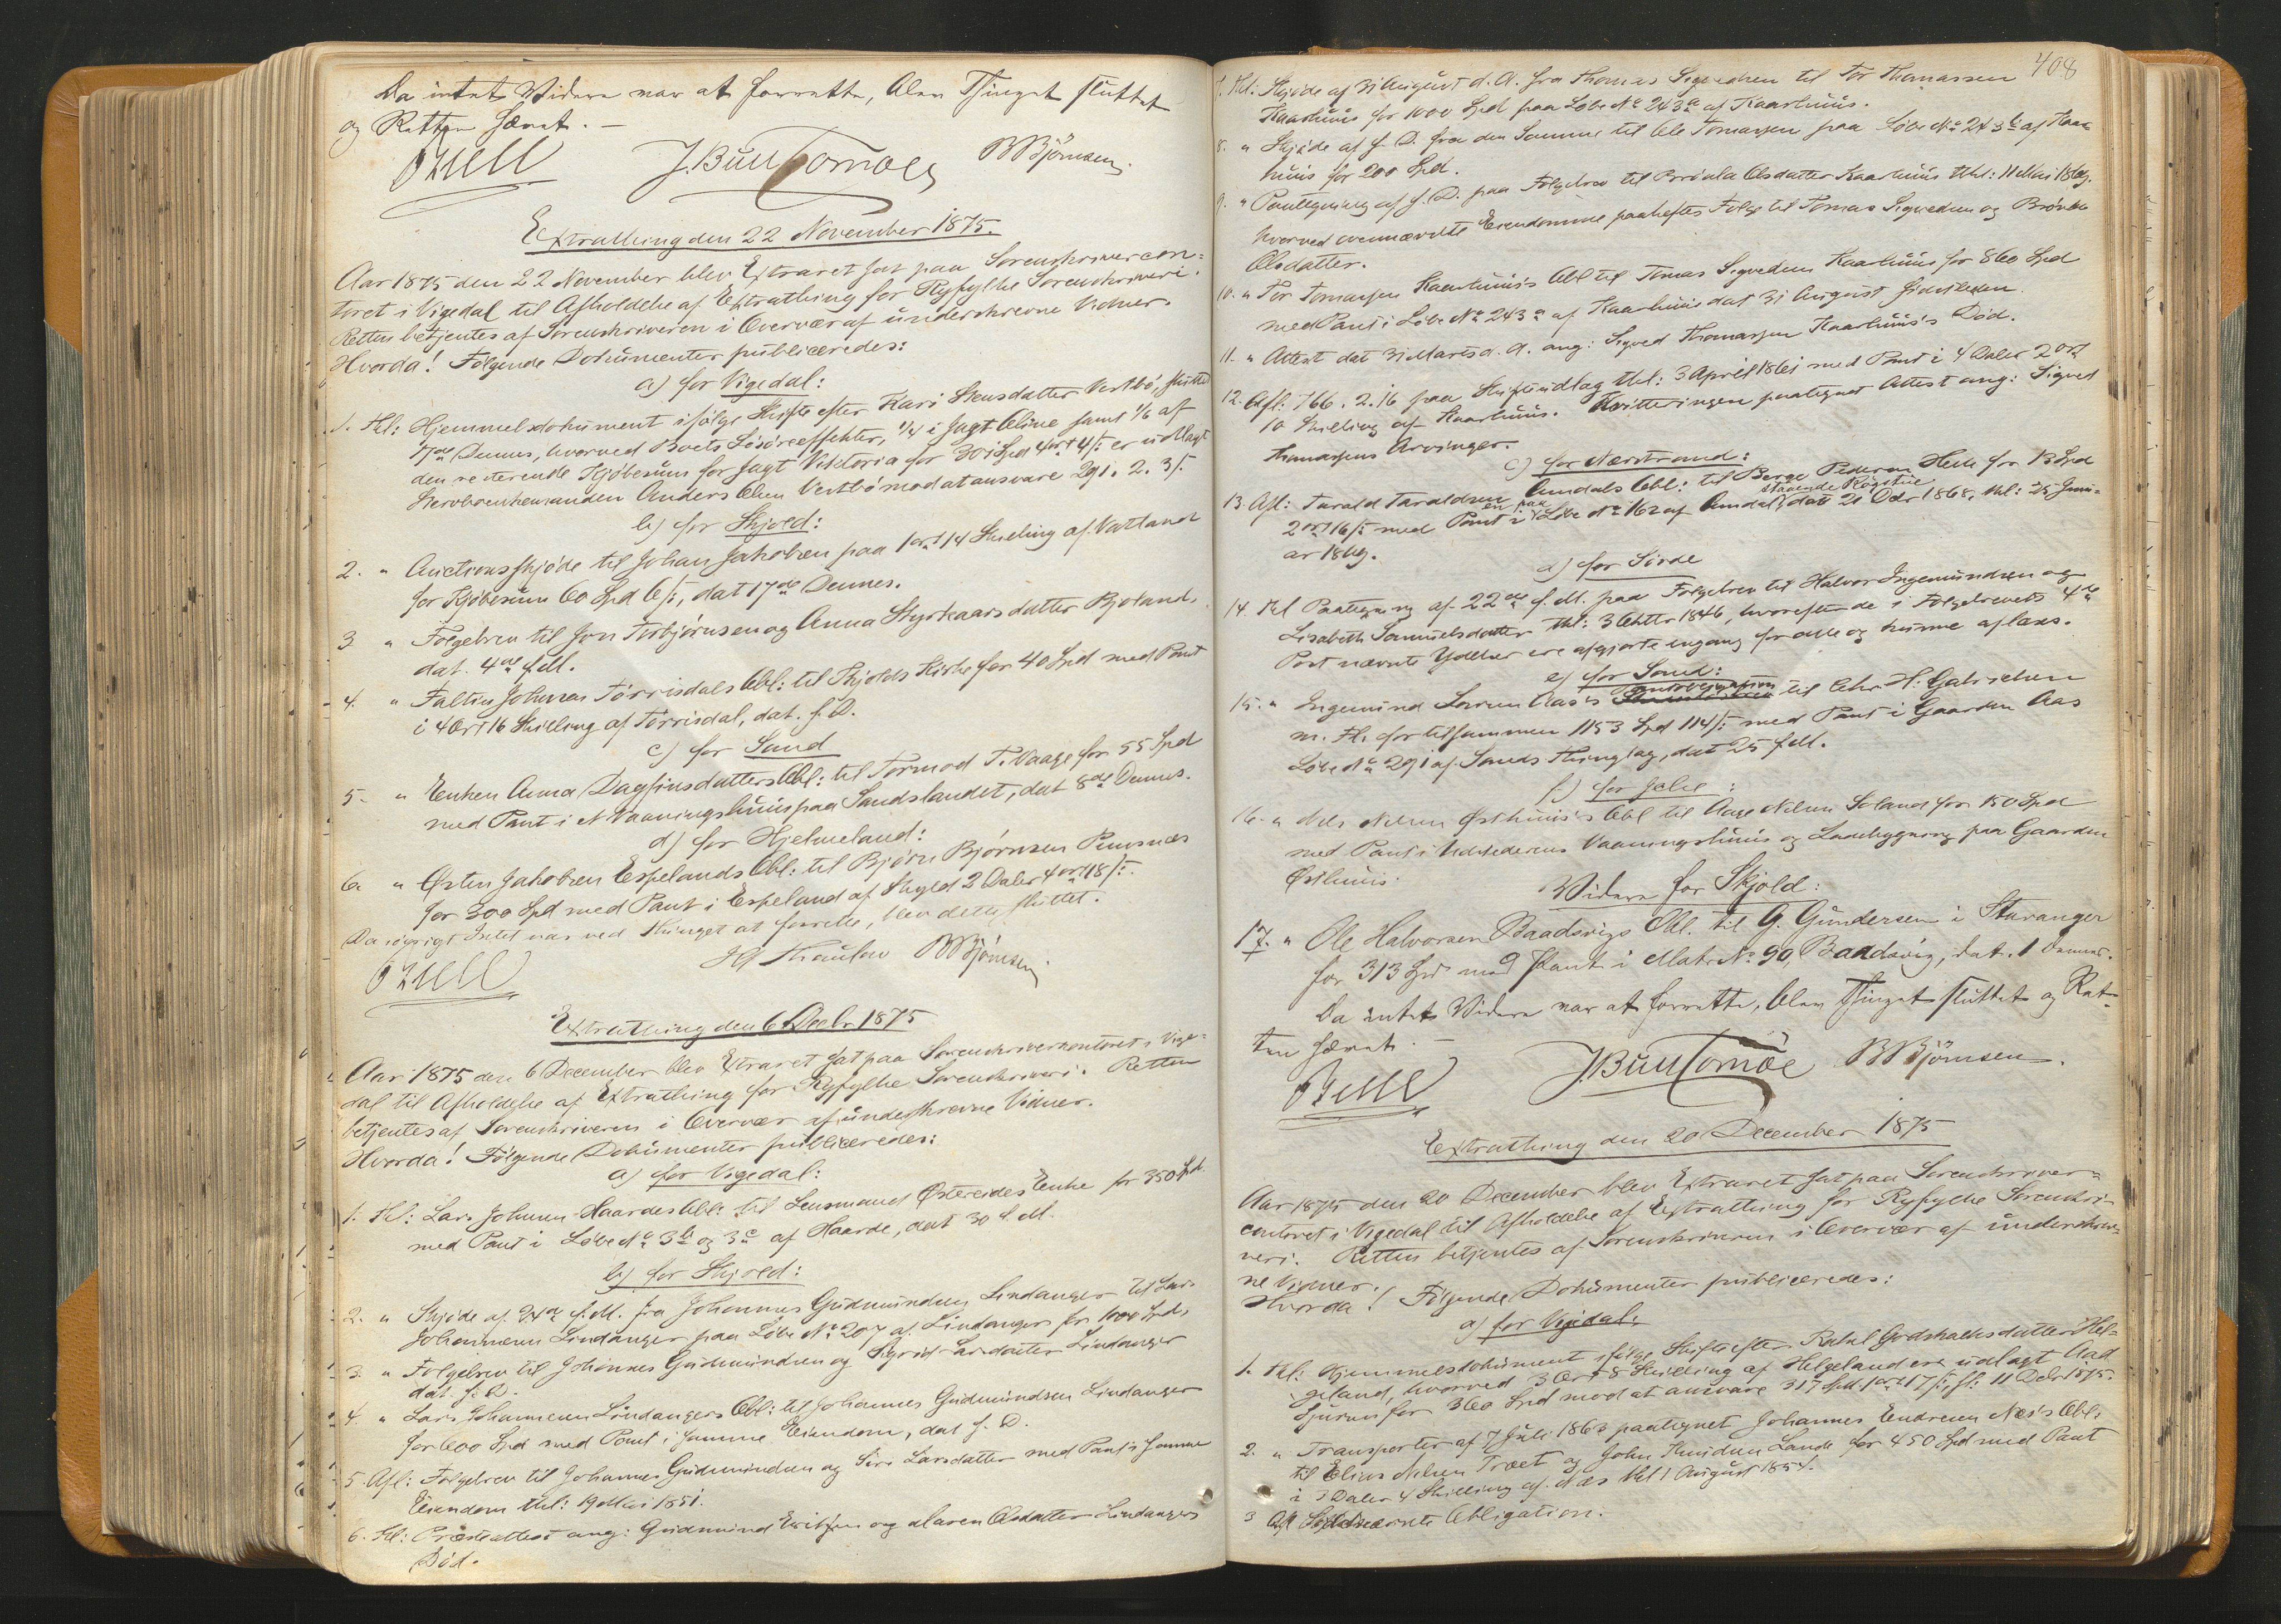 Da intet Videre var at forrette, blev Thinget sluttet
og Retten hævet. —
J. Buu Tornøe BBjørnsen.
Extrathing den 22 November 1875.
Aar 1875 den 22 November blev Extraret sat paa Sorenskrivercon=
toret i Vigedal til Afholdelse af Extrathing for Ryfylke Sorenskriveri.
Retten betjentes af Sorenskriveren i Overvær af underskrevne Vidner.
Hvorda! Følgende Dokumenter publiceredes:
a) for Vigedal:
1. Thl: Hjemmelsdokument ifølge Skifte efter Kari Stensdatter Vestbø, sluttet
17de Dennes, hvorved Boets Løsøreeffekter, 1/4 i Jagt Oline samt 1/6 af
den resterende Kjøbesum for Jagt Viktoria for 301 Spd 4 ort 4 s: er udlagt
Stervboenkemanden Anders Olsen Vestbø mod at ansvare 291. 2. 3 s.
b) for Skjold:
2. " Auctionsskjøde til Johan Jakobsen paa 1 ort 14 Skilling af Vatland
for Kjøbesum 60 Spd 6 s:, dat 17de Dennes.
3 " Følgebrev til Jon Torbjørnsen og Anna Styrkaarsdatter Bjoland,
dat. 4de f. M.
4. " Faltin Johnsen Tørrisdals Obl: til Skjolds Kirke for 40 Spd med Pant
i 4 Ort 16 Skilling af Tørrisdal, dat. s. D.
c) for Sand
5. " Enken Anna Dagfinsdatters Obl: til Tormod T. Vaage for 55 Spd
med Pant i et Vaaningshuus paa Sandslandet, dat 8de Dennes.
d) for Hjelmeland:
6. " Østen Jakobsen Espelands Obl: til Bjørn Bjørnsen Pundsnes
for 300 Spd med Pant i Espeland af Skyld 2 Daler 4 ort 18 s:
Da iøvrigt Intet var ved Thinget at forrette, blev dette sluttet.
Thaulow BBjørnsen.
Extrathing den 6 Decbr 1875
Aar 1875 den 6 December blev Extraret sat paa Sorenskriverkontoret i Vige=
dal til Afholdelse af Extrathing for Ryfylke Sorenskriveri. Retten
betjentes af Sorenskriveren i Overvær af underskrevne Vidner.
Hvorda! Følgende Dokumenter publiceredes:
a) for Vigedal:
1. Thl: Lars Johnsen Haardes Obl: til Lensmand Østereides Enke for 350 Spd
med Pant i Løbe No 3b og 3c af Haarde, dat 30 f. M.
b) for Skjold:
2. " Skjøde af 24de f. M. fra Johannes Gudmundsen Lindanger til Lars
Johannesen Lindanger paa Løbe No 207 af Lindanger for 1000 Spd.
3. " Følgebrev til Johannes Gudmundsen og Sigrid Larsdatter Lindanger
dat. s. D.
4. " Lars Johannesen Lindangers Obl: til Johannes Gudmundsen Lindanger
for 600 Spd med Pant i samme Eiendom, dat s. D.
5. Afl: Følgebrev til Johannes Gudmundsen og Siri Larsdatter med Pant i samme
Eiendom thl: 19 Mai 1851.
6. Thl: Præsteattest ang: Gudmund Eritsen og Maren Olsdatter Lindangers
Død.
408
7. Thl: Skjøde af 31 August d. A. fra Thomas Sigvedsen til Tor Thomassen
Kaarhuus for 1000 Spd paa Løbe No 243a af Kaarhuus.
8. " Skjøde af s. D. fra den Samme til Ole Tomassen paa Løbe No 243b af Kaar
huus for 200 Spd.
9. " Paategning af s. D. paa Følgebrev til Brønla Olsdatter Kaarhuus thl: 11 Mai 1869.
hvorved ovennævnte Eiendomme paaheftes Følge til Tomas Sigvedsen og Brønla
Olsdatter.
10. " Tor Tomassen Kaarhuus's Obl til Tomas Sigvedsen Kaarhuus for 860 Spd
med Pant i Løbe No 243a af Kaarhuus dat 31 August sidstleden.
11. " Attest dat 31 Marts d. A. ang: Sigved Thomassen Kaarhuus's Død.
12. Afl: 766. 2. 16 paa Skifteudlag thl: 3 April 1861 med Pant i 4 Daler 2 ort
10 Skilling af Kaarhuus. Kvitteringen paategnet Attest ang: Sigved
Thomassens Arvinger.
c) for Nærstrand:
13. Afl: Tarald Taraldsen Amdals Obl: til Berge Pedersen Hest for 13 Spd
2 ort 16 s: med Pant i en paa Løbe No 162 af Amdal staaende Røgstue dat 21 Octr 1868, thl: 25 Janu=
ar 1869.
d) for Jørde
14. Thl Paategning af 22de f. M. paa Følgebrev til Halvor Ingemundsen og
Lisabeth Samuelsdatter thl: 3 Octbr 1846, hvorefter de i Følgebrevets 4de
Post nævnte Ydelser ere afgjorte engang for alle og kunne aflæses.
e) for Sand:
15. " Ingemund Larsen Aas's Pantobligation til Chr. H. Gabrielsen
m. Fl. for tilsammen 1153 Spd 114 s: med Pant i Gaarden Aas
Løbe No 291 af Sands Thinglag, dat 25 f. M.
f.) for Jelse:
16. " Nils Nilsen Østhuus's Obl til Aage Nilsen Soland for 150 Spd
med Pant i Udstederens Vaaningshuus og Ladebygning paa Gaarden
Østhuus.
Videre for Skjold:
17. " Ole Halvorsen Baadsvigs Obl. til G. Gundersen i Stavanger
for 313 Spd med Pant i Matr. No. 90, Baadsvig, dat. 1 Dennes.
Da intet Videre var at forrette, blev Thinget sluttet og Ret=
ten hævet. —
J. Buu Tornøe BBjørnsen.
Extrathing den 20 December 1875
Aar 1875 den 20 December blev Extraret sat paa Sorenskriver=
contoret i Vigedal til Afholdelse af Extrathing for Ryfylke Sorenskri=
veri. Retten betjentes af Sorenskriveren i Overvær af underskrev=
ne Vidner.
Hvorda! Følgende Dokumenter publiceredes:
a) for Vigedal:
1. Thl: Hjemmelsdokument ifølge Skifte efter Rakel Godskalksdatter Hel=
geland, hvorved 3 Ort 8 Skilling af Helgeland ere udlagt Aad
Sjursen for 360 Spd mod at ansvare 317 Spd 1 ort 17 s:, sl: 11 Decbr 1875.
2. " Transporter af 7 Juli 1863 paategnet Johannes Endresen Næs's Obl:
til Elias Nilsen Træet og John Knudsen Lande for 450 Spd med Pant
i 3 Daler 4 Skilling af Næs thl 1 August 1854.
3 Afl Sidstnævnte Obligation.